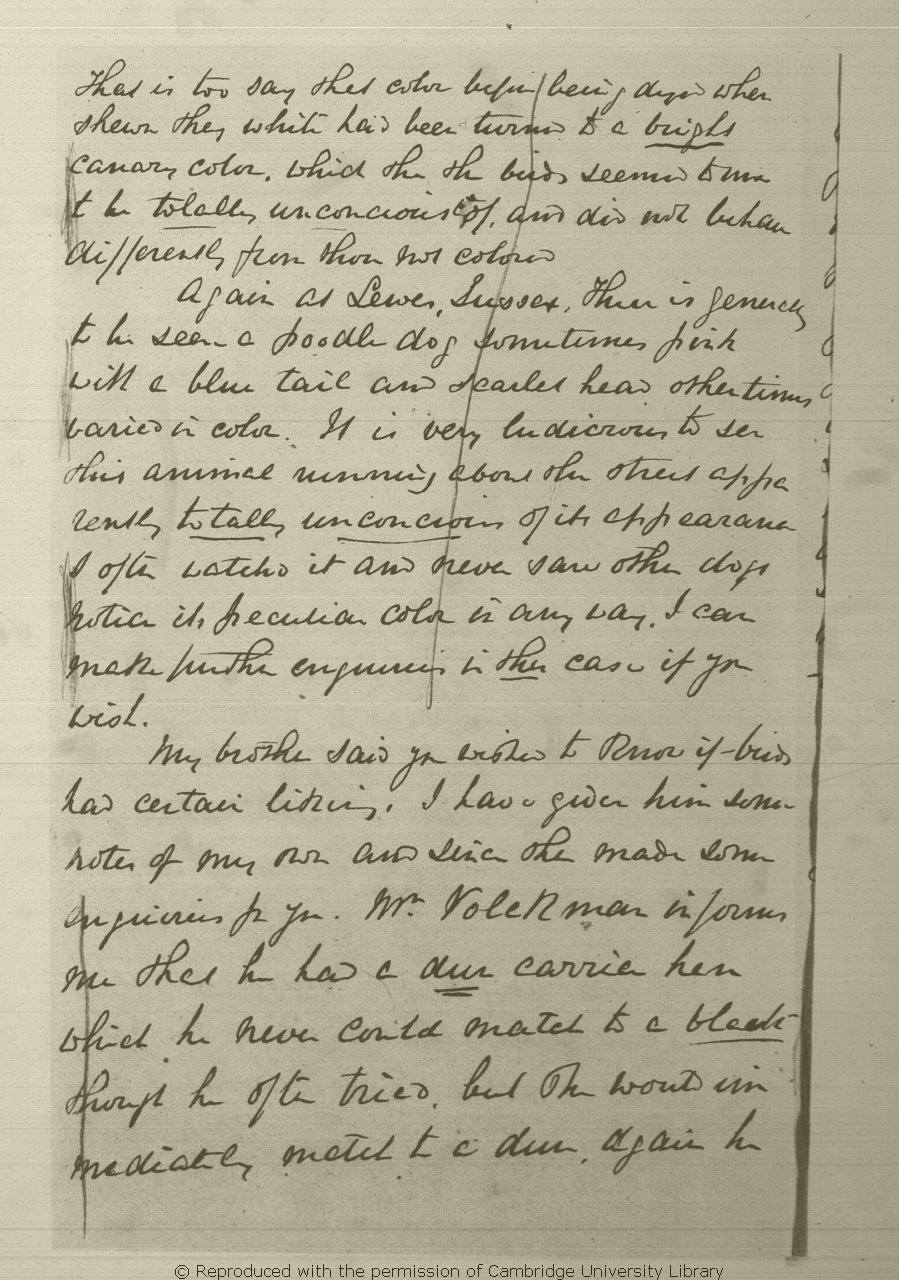 That is too say that color before being dyed when
shewn they white had been turned to a bright
canary color, which the the birds seemed to me
to be totally unconcious of, and did not behave
differently from those not colored
Again at Lewes, Sussex, There is generally
to be seen a poodle dog sometimes pink
with a blue tail and scarlet head other times
varied in color. It is very ludicrous to see
this animal running about the streets appa
rently totally unconcious of its appearance
I often watched it and never saw other dogs
notice its peculiar color in any way. I can
make further enquiries in this case if you
wish.
My brother said you wished to know if birds
had certain liking. I have given him some
notes of my own and since then made some
enquiries for you. Mr. Volckman informs
me that he had a dun carrier hen
which he never could match to a black
though he often tried, but she would im
mediately match to a dun. Again he
© Reproduced with the permission of Cambridge University Library